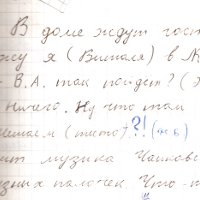 В доме ждут гост
жу я (Виталя) в
- В.А. так пойдет? (
Ничего. Ну что там
ешаем (тито) ?! (
ит музыка Чайков
зних палочек. Что-